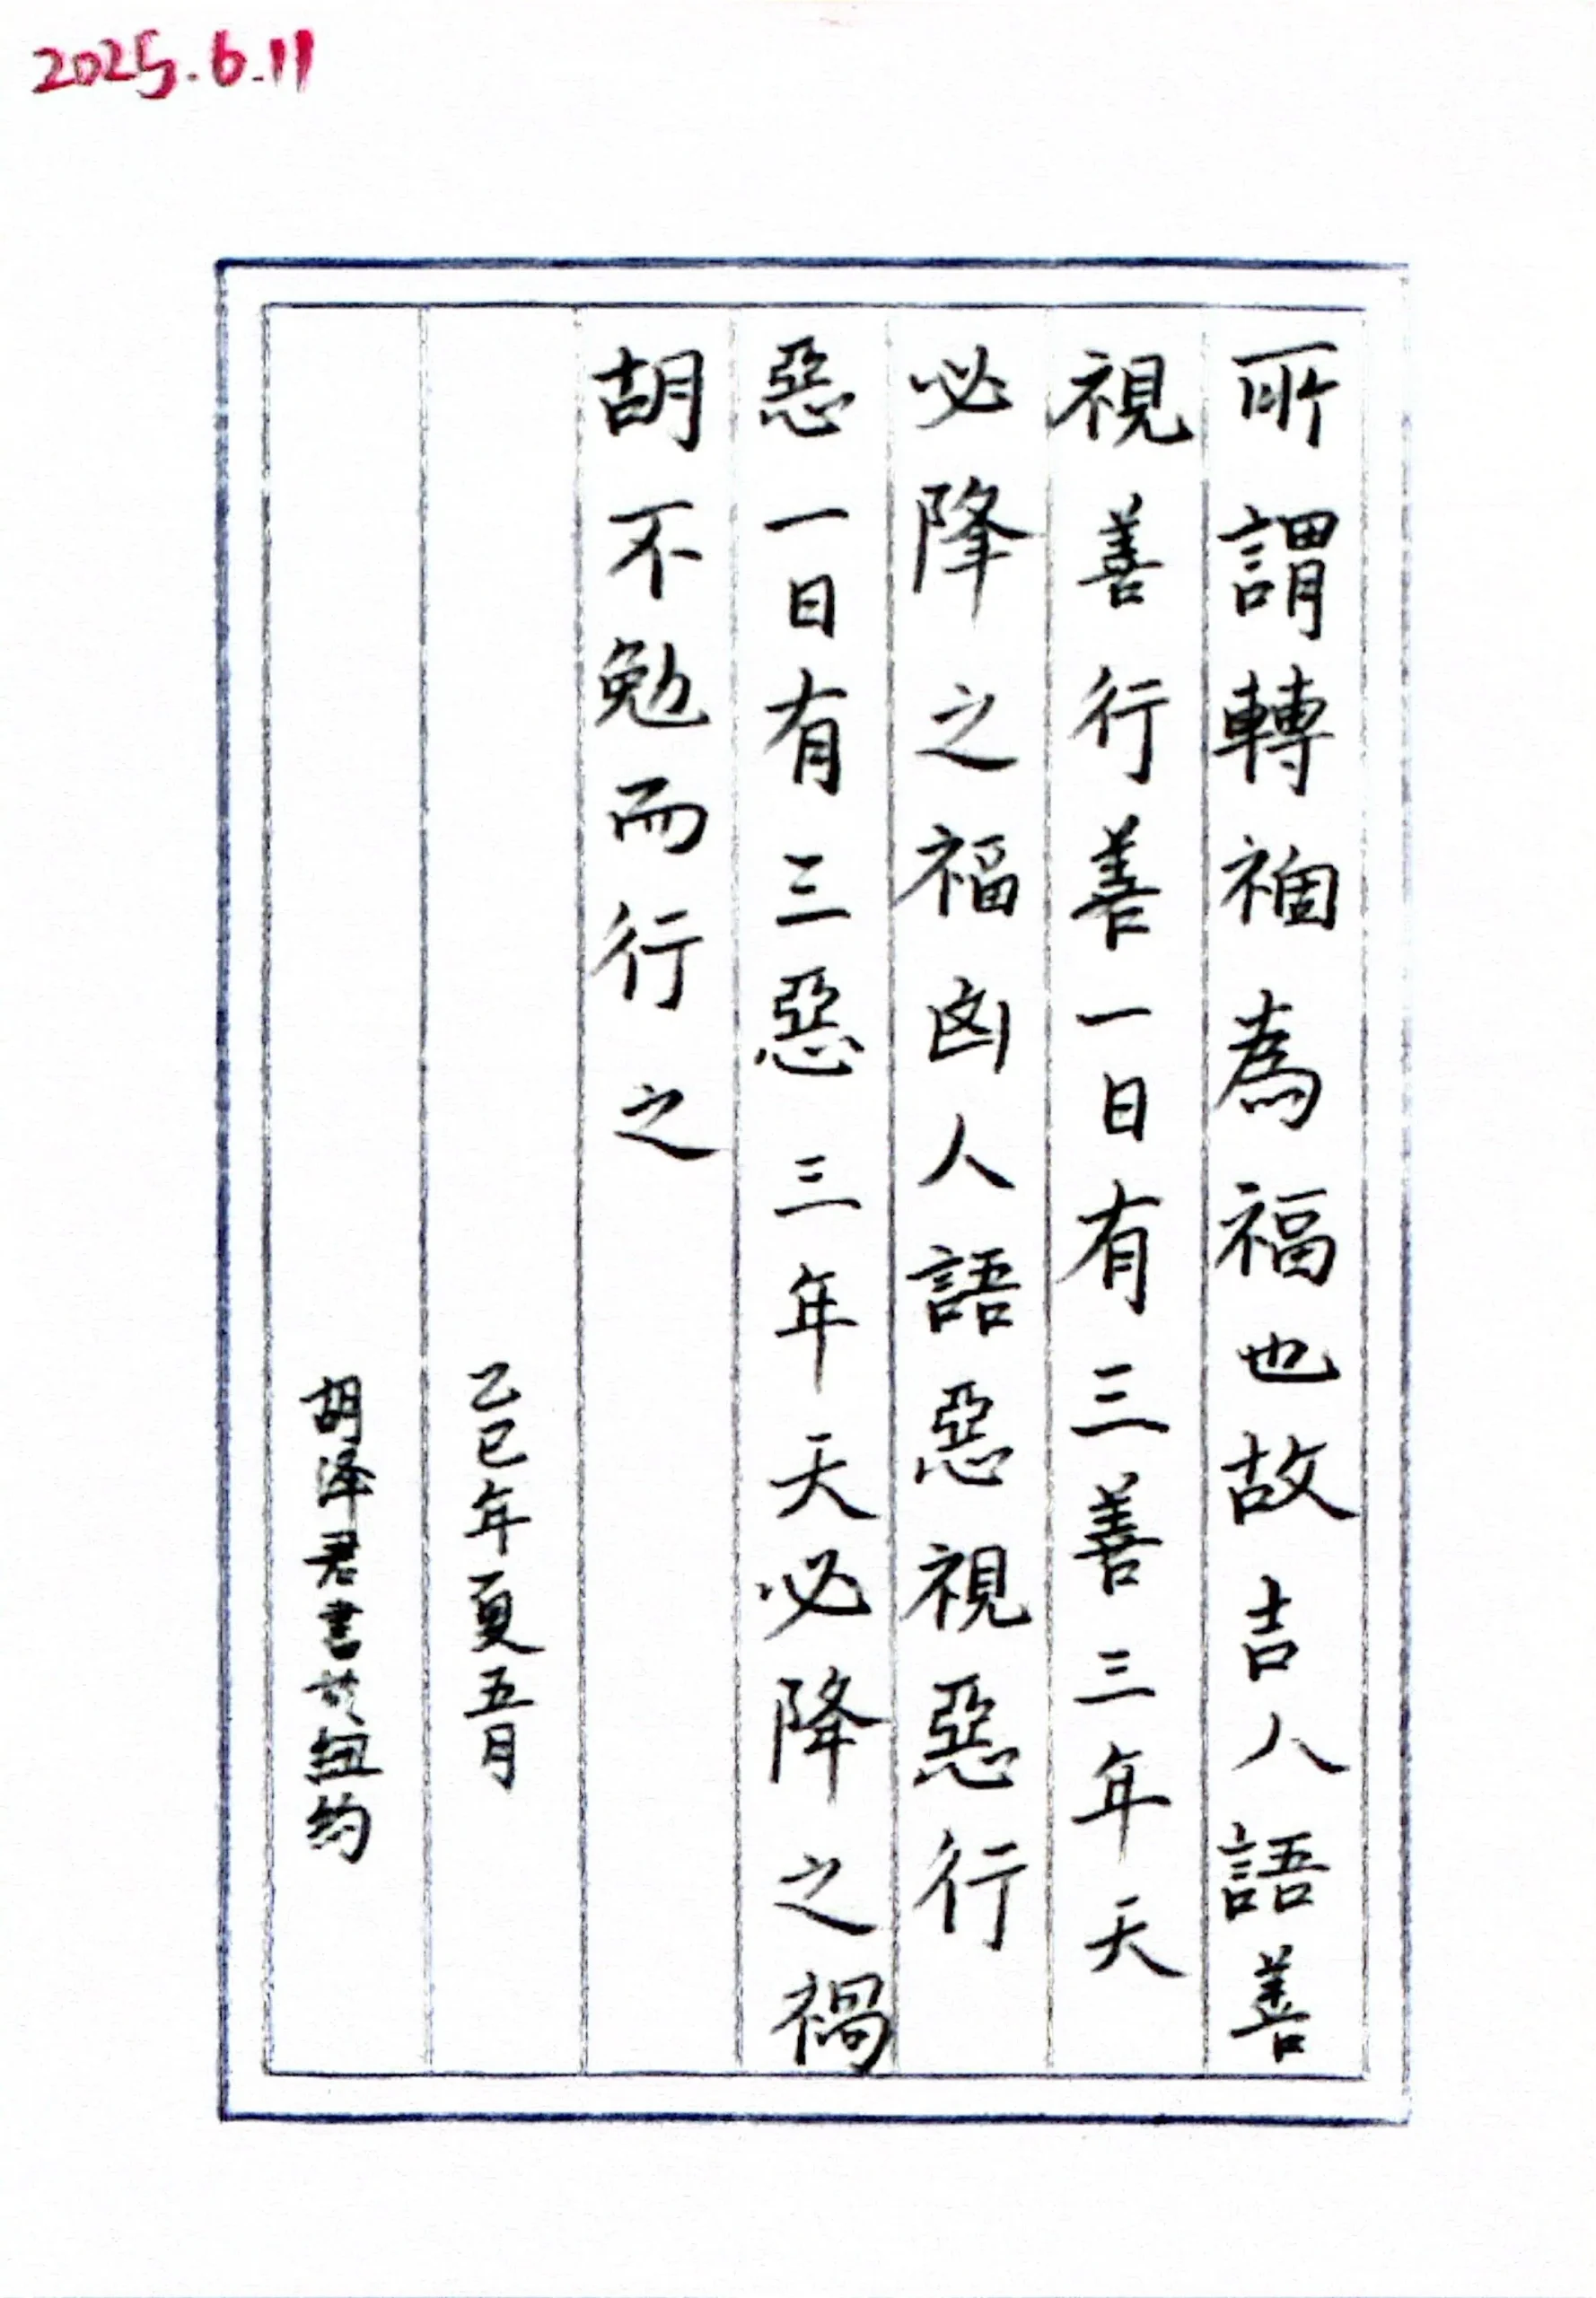 2025.6.11
所謂轉禍為福也故吉人語善
視善行善一日有三善三年天
必降之福凶人語惡視惡行
惡一日有三惡三年天必降之禍
胡不勉而行之
乙巳年夏五月
胡泽君書於紐約